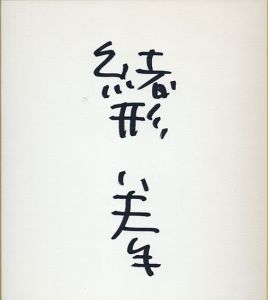 緒形 拳